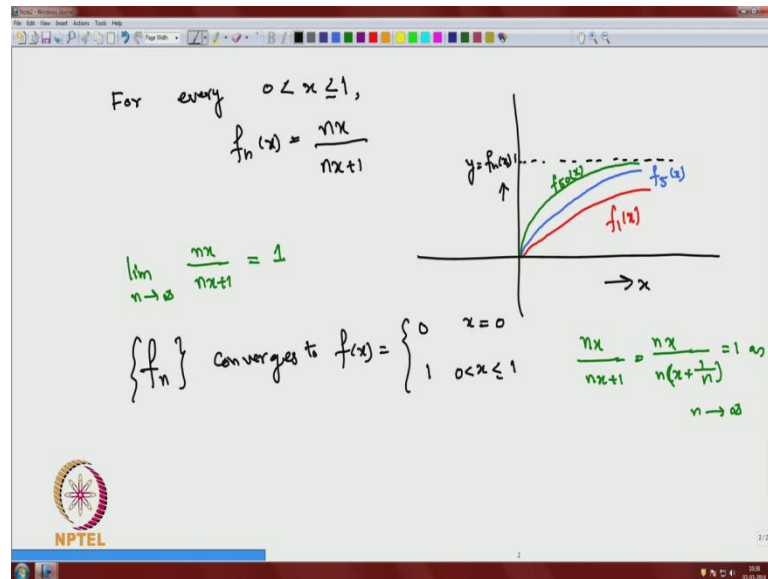 Note2 - Windows Journal
File Edit View Insert Actions Tools Help
Page Width
B I
For every 0 < x ≤ 1,
fₙ(x) = nx / nx+1
y = fₙ(x) 1
f₅₀(x)
f₅(x)
f₁(x)
→ x
lim n→∞ nx / nx+1 = 1
{fₙ} converges to f(x) = { 0 x = 0
1 0 < x ≤ 1
nx / nx+1 = nx / n(x + 1/n) = 1 as
n → ∞
NPTEL
2